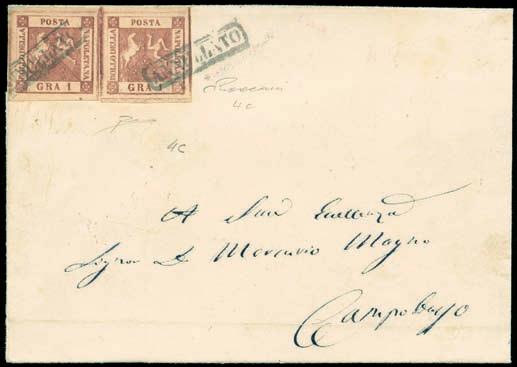 POSTA POSTA
BOLLO DELLA NAPOLETANA BOLLO DELLA NAPOLETANA
GRA 1 GRA
ANNULLATO
4C
4C
A Sua Eccellenza
Signor D. Mercurio Magno
Campobasso